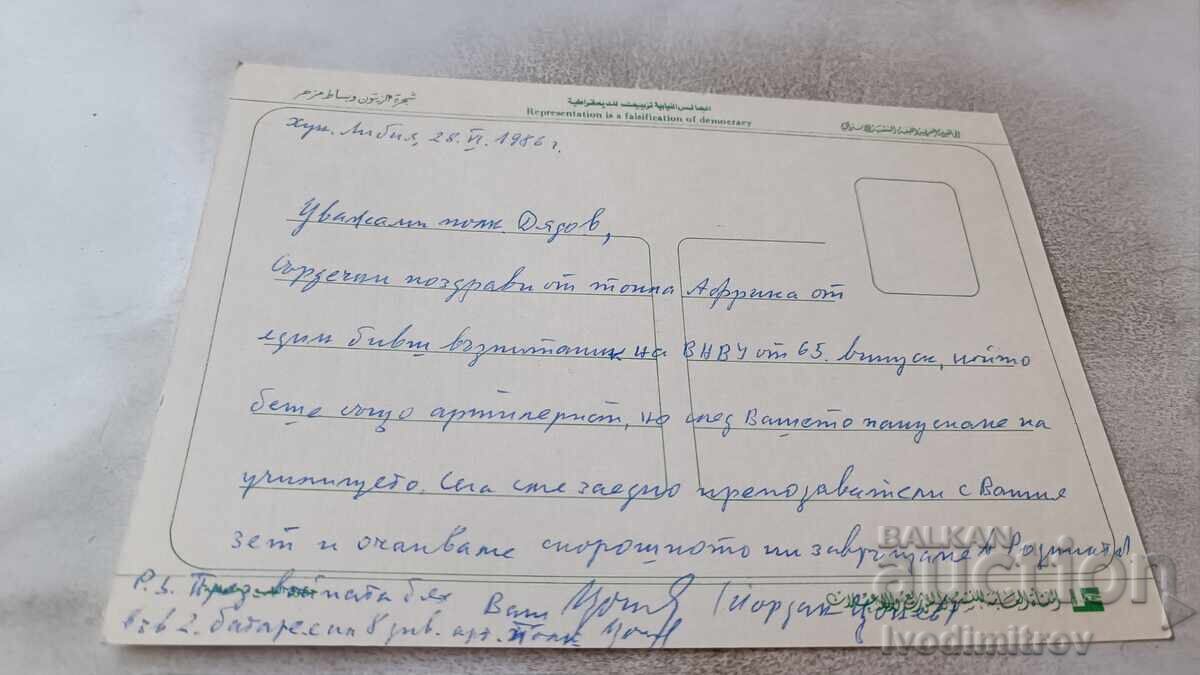 شجرة الزيتون وبساط مزهر
المجالس النيابية تزييف للديمقراطية
Representation is a falsification of democracy
Хун. Либия, 28.VI.1986 г.
Уважаеми полк. Дядов,
Сърдечни поздрави от топла Африка от
един бивш възпитаник на ВНВУ от 65. випуск, който
беше също артилерист, но след Вашето напускане на
училището. Сега сме заедно преподаватели с Вашия
зет и очакваме скорошното ни завръщане в Родината.
P.S. През войната бях
Ваш Йордан Цонев
във 2. батарея на 8 див. арт. полк
BALKAN
auction
ivodimitrov